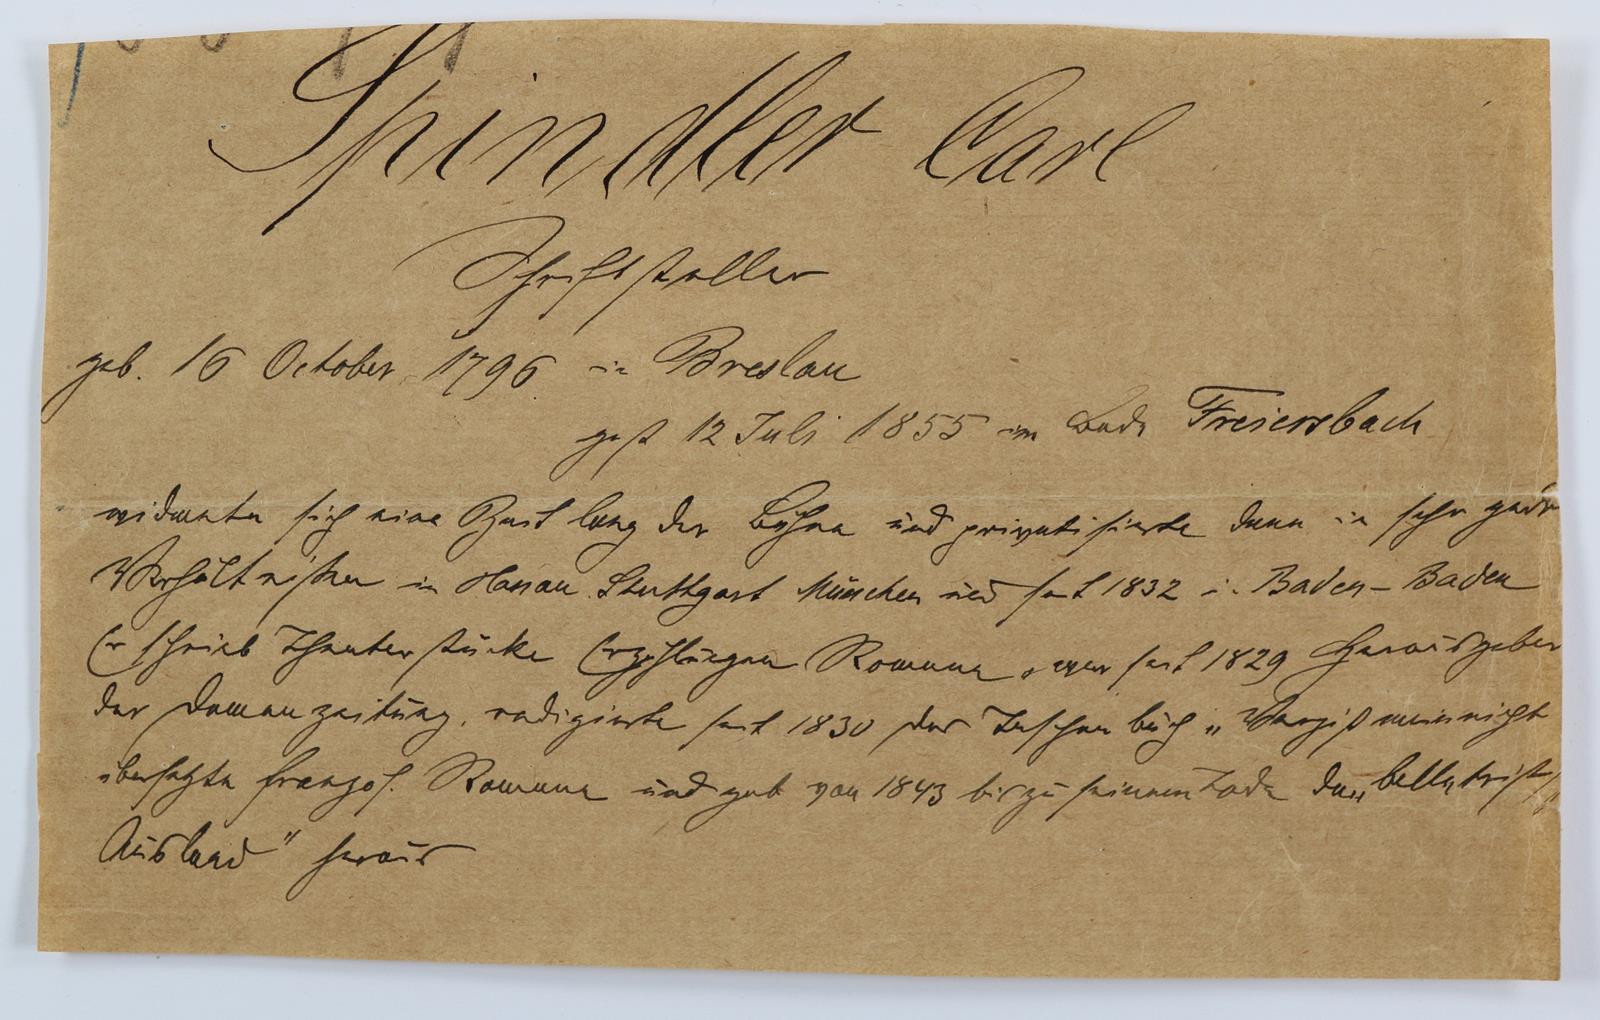 Spindler Carl
Schriftsteller
geb. 16 October 1796 in Breslau
gest 12 Juli 1855 im Bade Freiersbach
widmete sich eine Zeit lang der Bühne und privatisierte dann in sehr
Verhältnißen in Hanau Stuttgart München und seit 1832 in Baden-Baden
Er schrieb Theaterstücke Erzählungen Romane, war seit 1829 Herausgeber
der Damenzeitung, redigierte seit 1830 das Taschenbuch „Vergißmeinnicht
übersetzte französ. Romane und gab von 1843 bis zu seinem Tode das „belletrist
Ausland" heraus